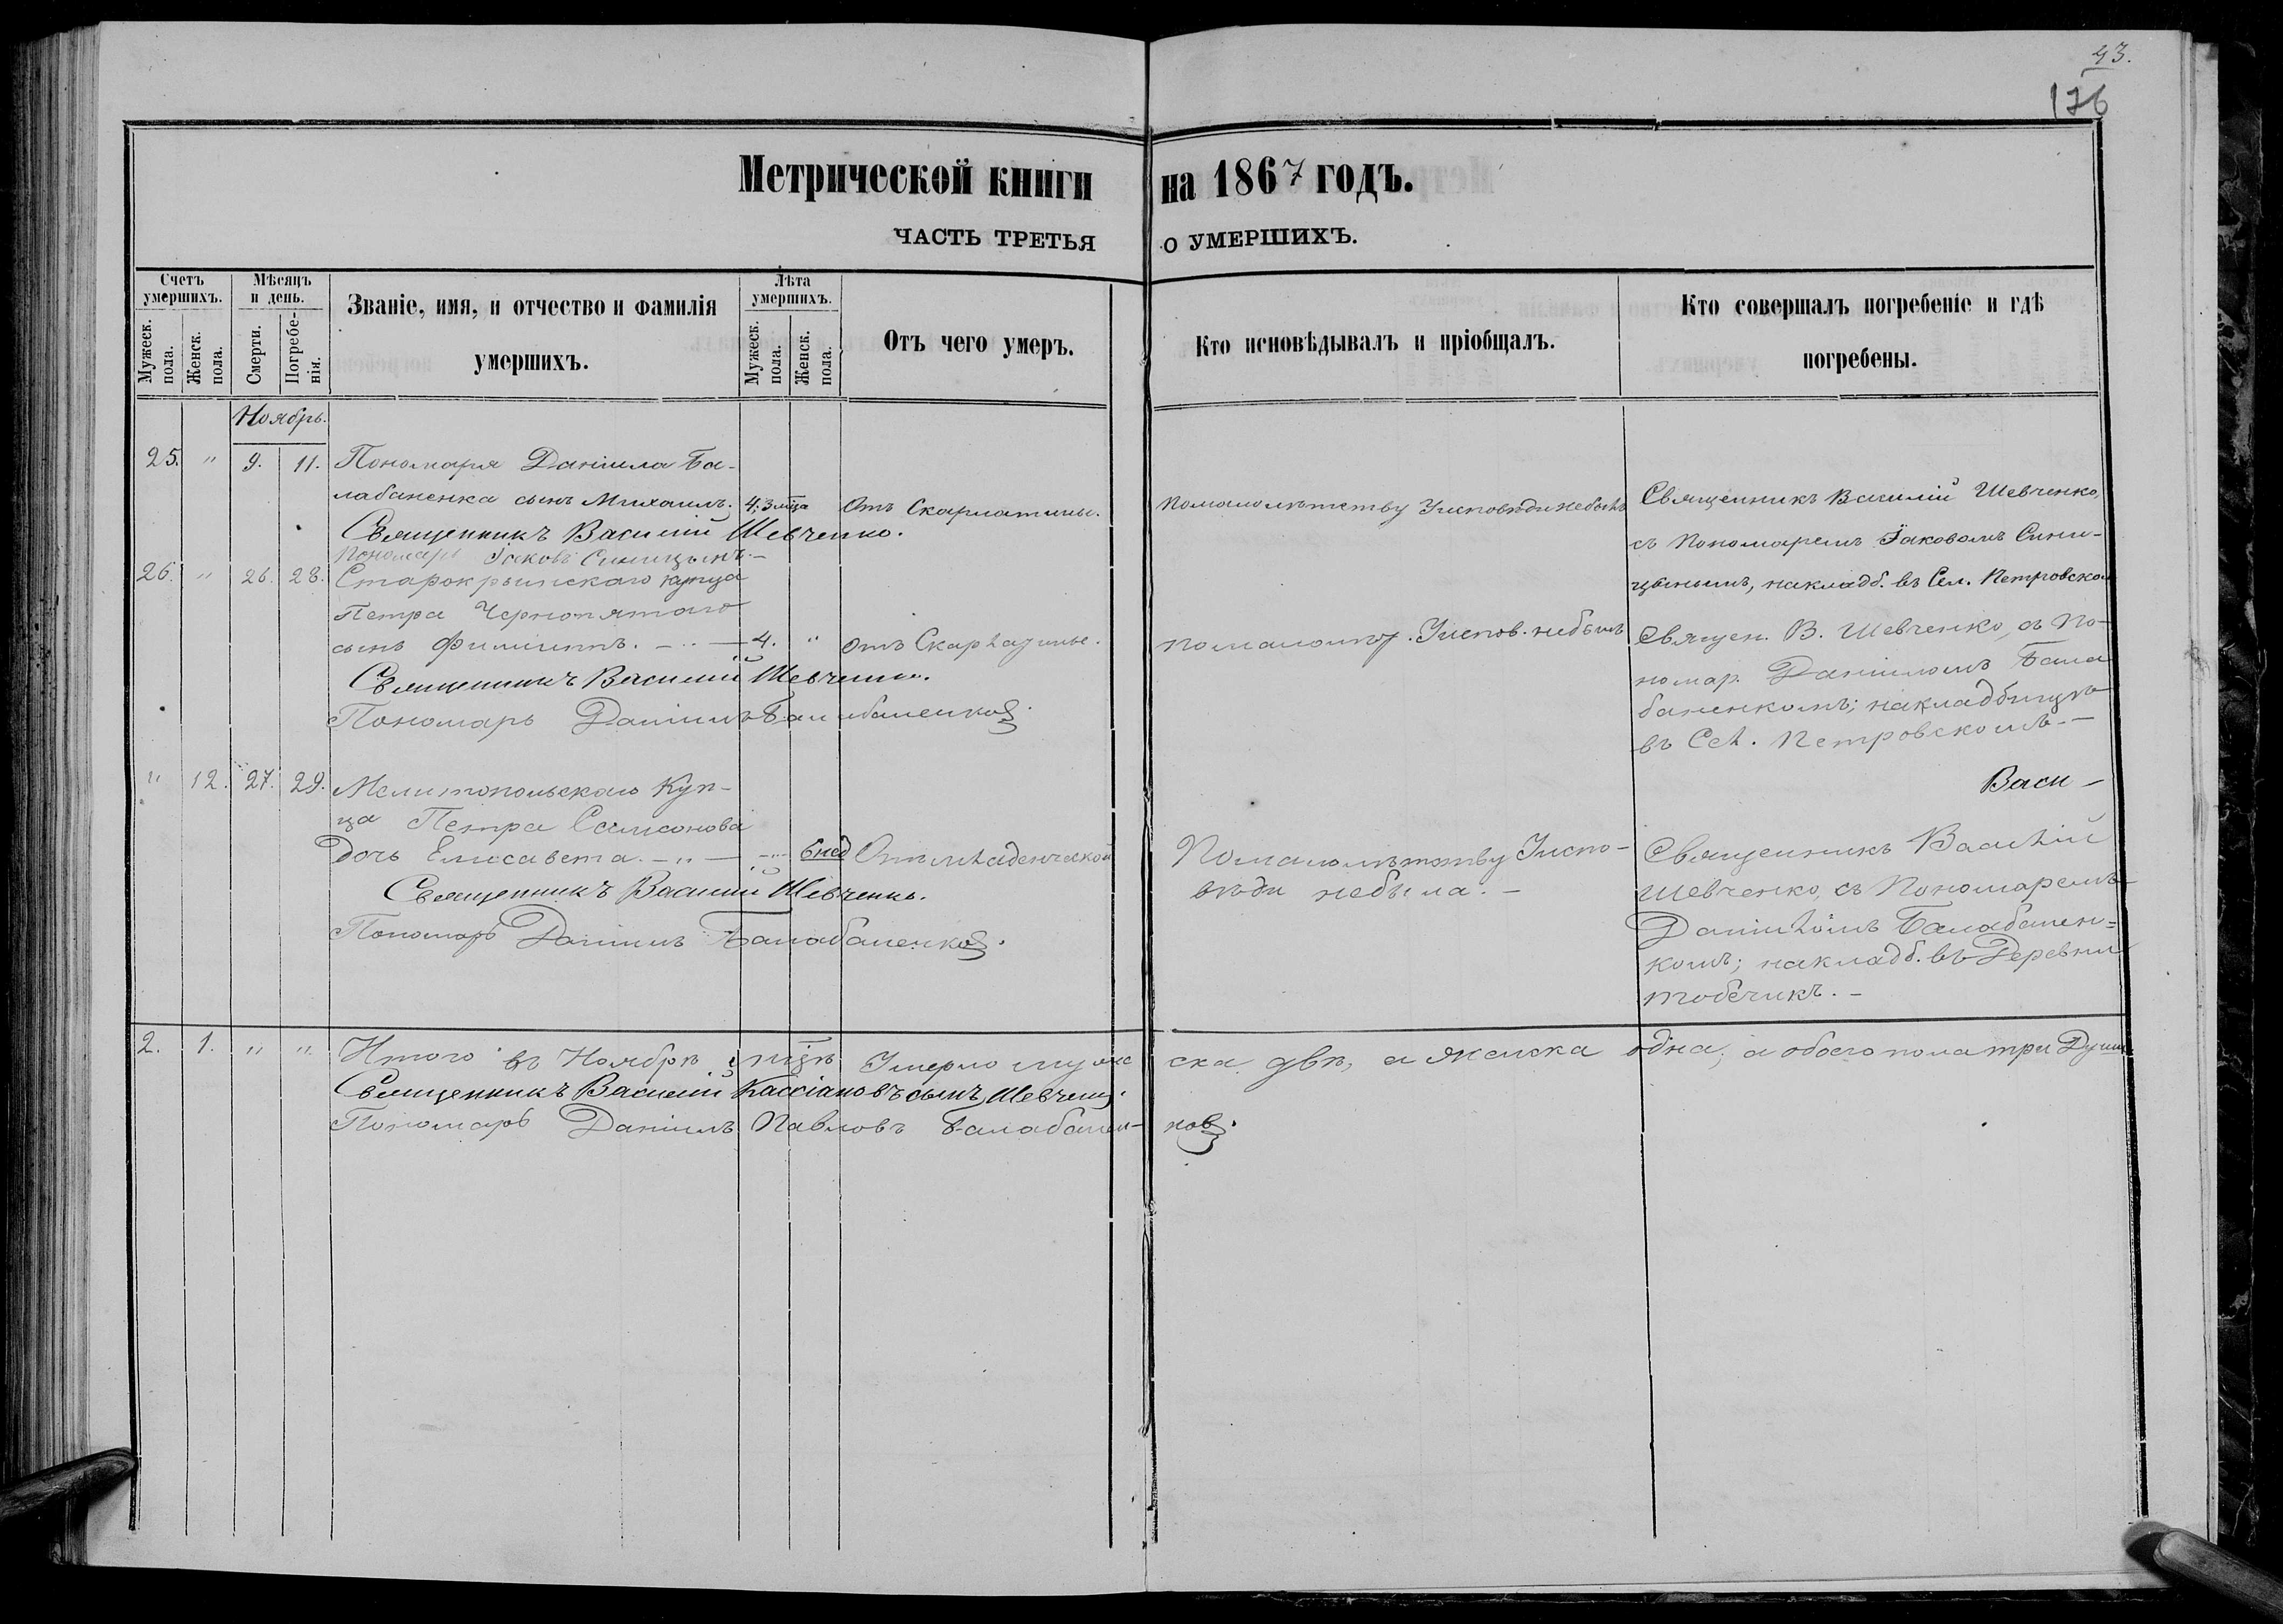 43.
176
Метрической книги на 1867 годъ.
ЧАСТЬ ТРЕТЬЯ О УМЕРШИХЪ.
Счетъ умершихъ.
Мужеск. пола.
Женск. пола.
Мѣсяцъ и день.
Смерти.
Погребенія.
Званіе, имя, и отчество и фамилія
умершихъ.
Лѣта умершихъ.
Мужеск. пола.
Женск. пола.
Отъ чего умеръ.
Кто исповѣдывалъ и пріобщалъ.
Кто совершалъ погребеніе и гдѣ
погребены.
Ноябрь.
25. " 9. 11. Пономаря Даніила Ба-
лабаненка сынъ Михаилъ. 4; 3 мца Отъ Скарлатины.
Помалолѣтству Исповѣди небылъ
Священникъ Василій Шевченко,
съ Пономаремъ Іаковомъ Сини-
цынымъ, накладб. въ Сел. Петровском
Священникъ Василій Шевченко.
Пономарь Іаковъ Синицынъ.-
26. " 26. 28. Старокрымскаго купца
Петра Чернопятаго
сынъ Филиппъ. - " - 4. " Отъ Скарлатины.
Помалолѣт. Испов. небылъ
Священ. В. Шевченко, съ По-
номар. Даніиломъ Бала
баненкомъ; накладбищѣ
въ Сел. Петровскомъ. -
Священникъ Василій Шевченко.
Пономарь Даніилъ Балабаненковъ.
" 12. 27. 29. Мелитопольскаго Куп-
ца Петра Самсонова
дочь Елисавета. - " - 6 нед Отъ младенческой
Помалолѣтству Испо-
вѣди небыла. -
Васи -
Священникъ Василій
Шевченко, съ Пономаремъ
Даніиломъ Балабанен-
комъ; накладб. въ Деревни
тобечикъ. -
Священникъ Василій Шевченко.
Пономарь Даніилъ Балабаненковъ.
2. 1. " " Итого въ Ноябрѣ мцѣ Умерло мужеска двѣ, а женска одна, а обоего пола три Души
Священникъ Василій Кассіановъ сынъ Шевченко.
Пономарь Даніилъ Павловъ Балабанен-ковъ.